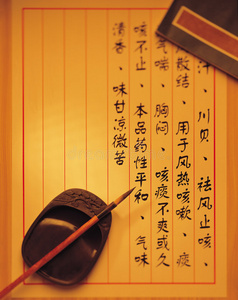 汁、川贝、祛风止咳、
散结、用于风热咳嗽、痰
气喘、胸闷、咳痰不爽或久
咳不止、本品药性平和、气味
清香、味甘凉微苦